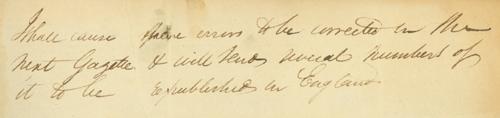 I shall cause these errors to be corrected in the
next Gazette & will send several numbers of
it to be republished in England